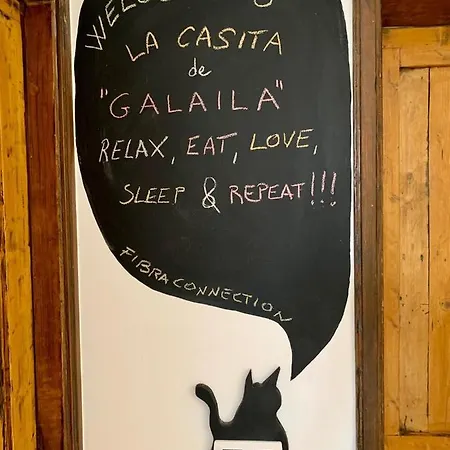 LA CASITA
de
"GALAILA"
RELAX, EAT, LOVE,
SLEEP & REPEAT!!!
FIBRA CONNECTION